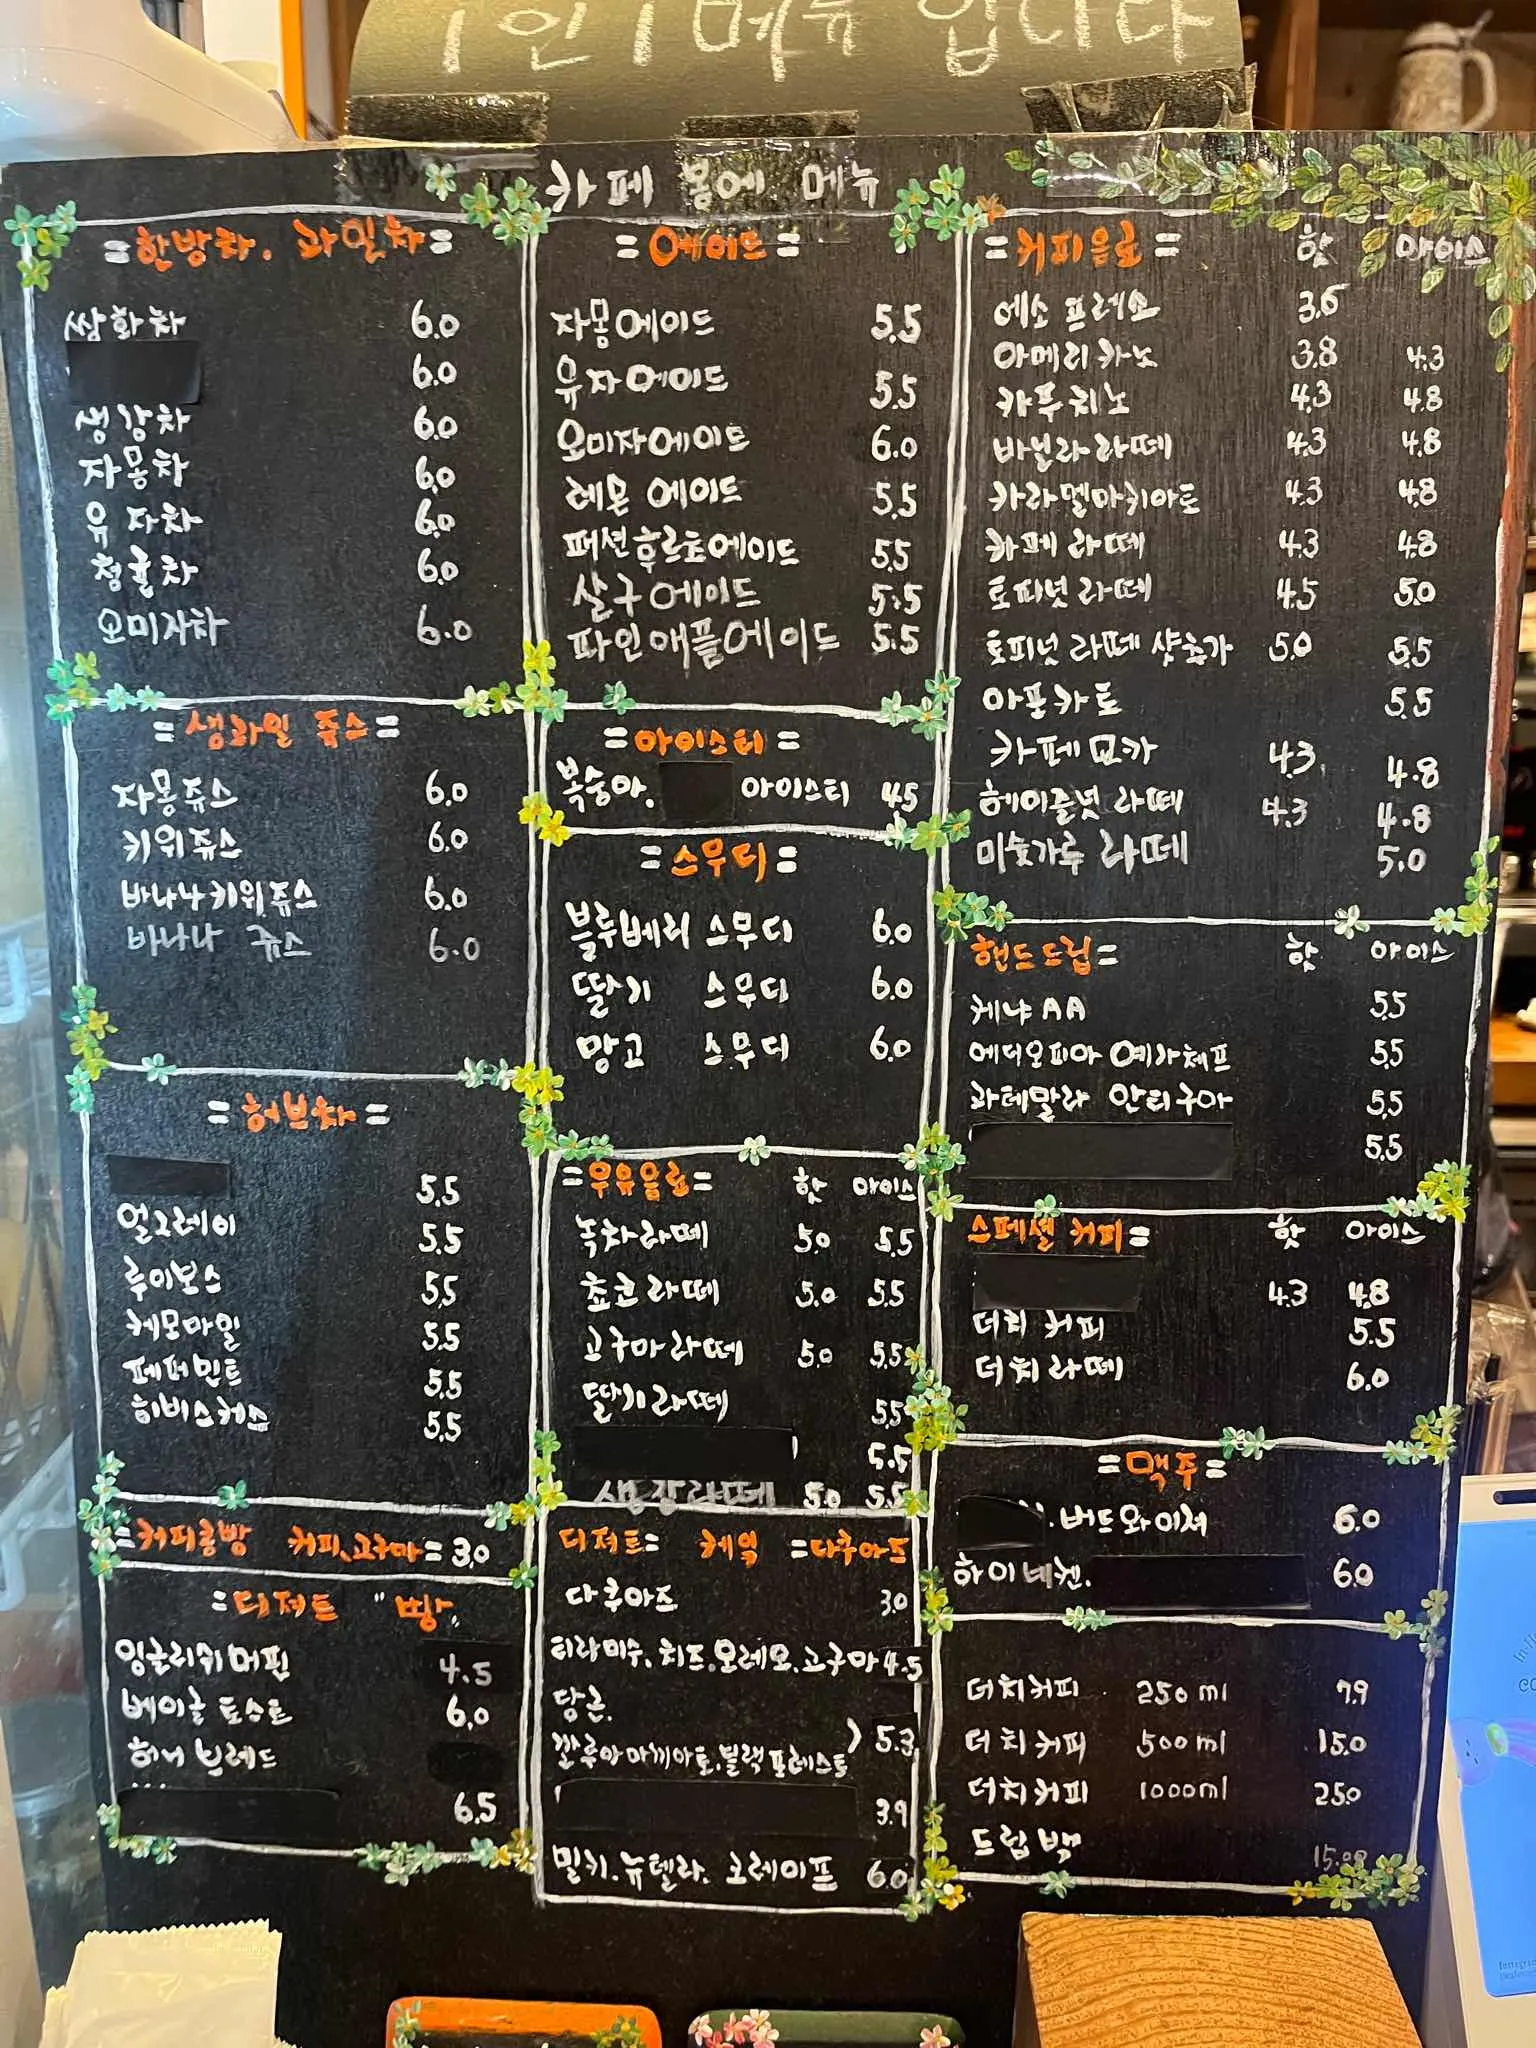 1인 1메뉴 입니다
카페 봉에 메뉴
=한방차. 과일차=
쌍화차 6.0
6.0
생강차 6.0
자몽차 6.0
유자차 6.0
청귤차 6.0
오미자차 6.0
=생과일 쥬스=
자몽쥬스 6.0
키위쥬스 6.0
바나나키위쥬스 6.0
바나나 쥬스 6.0
=허브차=
5.5
얼그레이 5.5
루이보스 5.5
케모마일 5.5
페퍼민트 5.5
히비스커스 5.5
=커피콩빵 커피.고구마= 3.0
=디저트 "빵"
잉글리쉬머핀 4.5
베이글 토스트 6.0
허니 브레드
6.5
=에이드=
자몽에이드 5.5
유자에이드 5.5
오미자에이드 6.0
레몬 에이드 5.5
패션후르츠에이드 5.5
살구에이드 5.5
파인애플에이드 5.5
=아이스티=
복숭아. 아이스티 4.5
=스무디=
블루베리 스무디 6.0
딸기 스무디 6.0
망고 스무디 6.0
=우유음료= 핫 아이스
녹차라떼 5.0 5.5
쵸코라떼 5.0 5.5
고구마라떼 5.0 5.5
딸기라떼 5.5
5.5
생강라떼 5.0 5.5
디저트= 케익 =다쿠아즈
다쿠아즈 3.0
티라미수.치즈.오레오.고구마 4.5
당근.
깔루아마끼아또.블랙포레스트 > 5.3
3.9
밀키.뉴텔라. 크레이프 6.0
=커피음료= 핫 아이스
에소프레소 3.5
아메리카노 3.8 4.3
카푸치노 4.3 4.8
바닐라라떼 4.3 4.8
카라멜마키아토 4.3 4.8
카페라떼 4.3 4.8
토피넛라떼 4.5 5.0
토피넛라떼샷추가 5.0 5.5
아포카토 5.5
카페모카 4.3 4.8
헤이즐넛라떼 4.3 4.8
미숫가루 라떼 5.0
핸드드립= 핫 아이스
케냐AA 5.5
에디오피아 예가체프 5.5
과테말라 안티구아 5.5
5.5
스페셜 커피= 핫 아이스
4.3 4.8
더치 커피 5.5
더치라떼 6.0
=맥주=
.버드와이져 6.0
하이네켄. 6.0
더치커피 250ml 7.9
더치커피 500ml 15.0
더치커피 1000ml 25.0
드립백